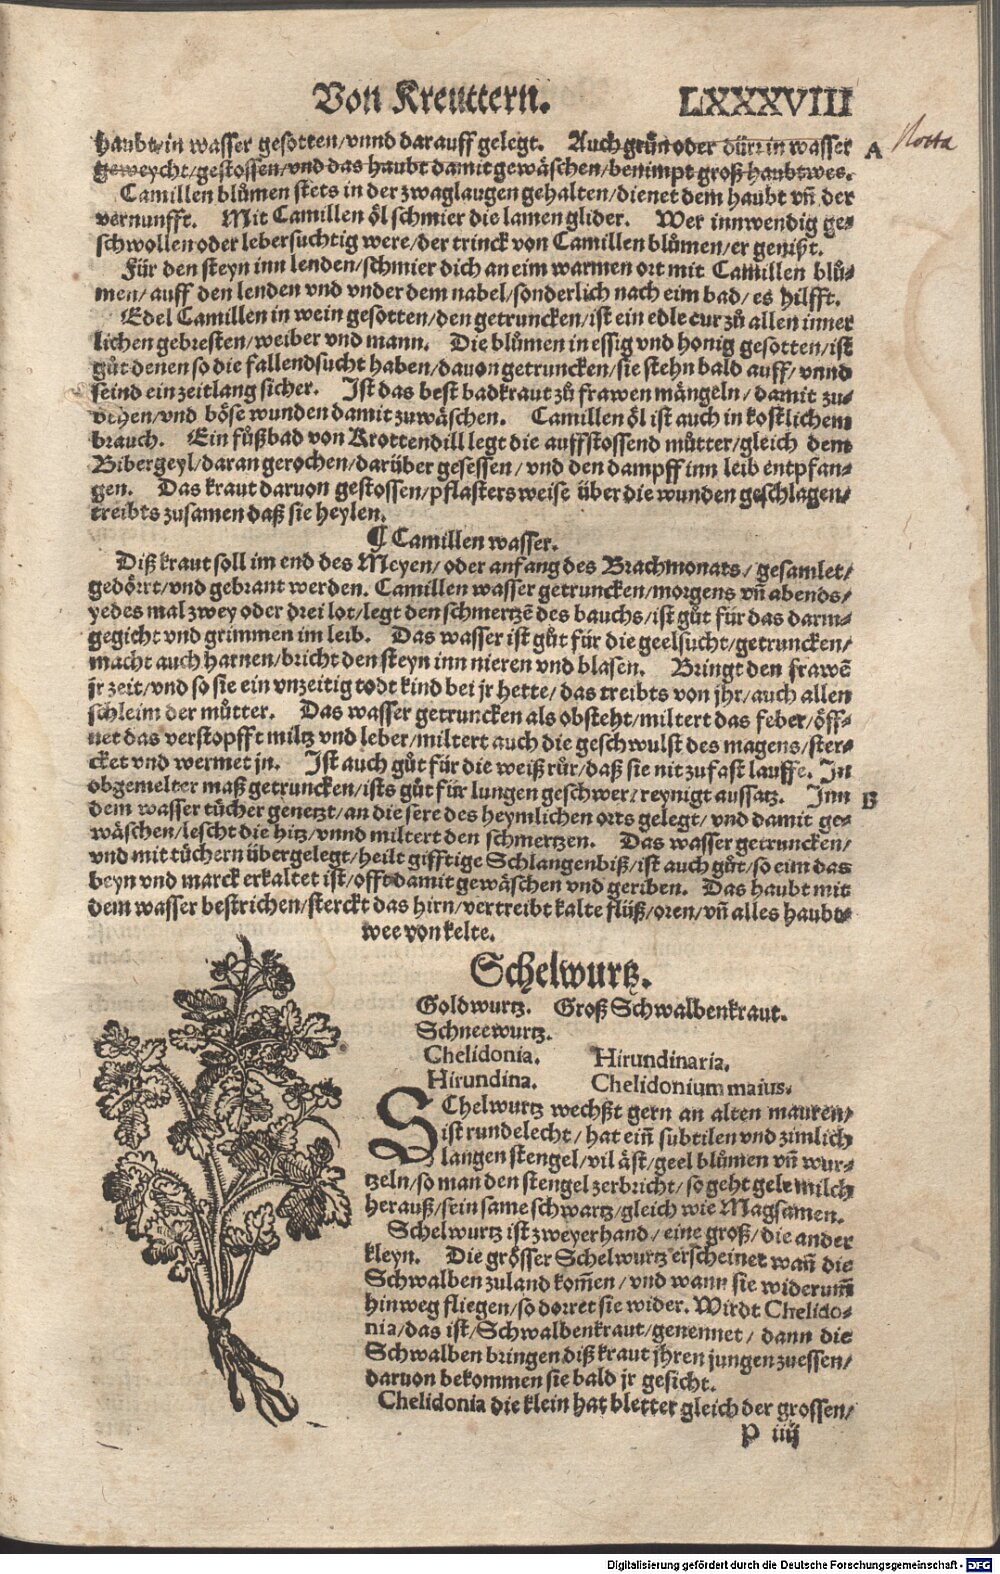 Von Kreuttern. LXXXVIII
haubt/in wasser gesotten/vnnd darauff gelegt. Auch grün oder dürr in wasser A Nota
geweycht/gestossen/vnd das haubt damit gewäschen/benimpt groß haubtwee.
Camillen blůmen stets in der zwaglaugen gehalten/dienet dem haubt vñ der
vernunfft. Mit Camillen öl schmier die lamen glider. Wer innwendig ge-
schwollen oder lebersuchtig were/der trinck von Camillen blůmen/er genißt.
Für den steyn inn lenden/schmier dich an eim warmen ort mit Camillen blů-
men/auff den lenden vnd vnder dem nabel/sonderlich nach eim bad/es hilfft.
Edel Camillen in wein gesotten/den getruncken/ist ein edle cur zů allen inner
lichen gebresten/weiber vnd mann. Die blůmen in essig vnd honig gesotten/ist
gůt denen so die fallendsucht haben/dauon getruncken/sie stehn bald auff/vnnd
seind ein zeitlang sicher. Ist das best badkraut zů frawen mängeln/damit zu-
dehen/vnd böse wunden damit zuwäschen. Camillen öl ist auch in kostlichem
brauch. Ein fůßbad von Krottendill legt die auffstossend můtter/gleich dem
Bibergeyl/daran gerochen/darüber gesessen/vnd den dampff inn leib entpfan-
gen. Das kraut daruon gestossen/pflasters weise über die wunden geschlagen/
treibts zusamen daß sie heylen.
¶ Camillen wasser.
Diß kraut soll im end des Meyen/oder anfang des Brachmonats/gesamlet/
gedörrt/vnd gebrant werden. Camillen wasser getruncken/morgens vñ abends/
yedes mal zwey oder drei lot/legt den schmertzē des bauchs/ist gůt für das darm-
gegicht vnd grimmen im leib. Das wasser ist gůt für die geelsucht/getruncken/
macht auch harnen/bricht den steyn inn nieren vnd blasen. Bringt den frawē
jr zeit/vnd so sie ein vnzeitig todt kind bei jr hette/das treibts von jhr/auch allen
schleim der můtter. Das wasser getruncken als obsteht/miltert das feber/öff-
net das verstopfft miltz vnd leber/miltert auch die geschwulst des magens/ster-
cket vnd wermet jn. Ist auch gůt für die weiß růr/daß sie nit zu fast lauffe. In
obgemelter maß getruncken/ists gůt für lungen geschwer/reynigt aussatz. Inn B
dem wasser tücher genetzt/an die sere des heymlichen orts gelegt/vnd damit ge-
wäschen/lescht die hitz/vnnd miltert den schmertzen. Das wasser getruncken/
vnd mit tüchern übergelegt/heilt gifftige Schlangenbiß/ist auch gůt/so eim das
beyn vnd marck erkaltet ist/offt damit gewäschen vnd geriben. Das haubt mit
dem wasser bestrichen/sterckt das hirn/vertreibt kalte flüß/oren/vñ alles haubt-
wee von kelte.
Schelwurtz.
Goldwurtz. Groß Schwalbenkraut.
Schneewurtz.
Chelidonia. Hirundinaria.
Hirundina. Chelidonium maius.
SChelwurtz wechßt gern an alten mauren/
ist rundelecht/hat ein subtilen vnd zimlich
langen stengel/vil äst/geel blůmen vñ wur-
tzeln/so man den stengel zerbricht/so geht gele milch
herauß/sein same schwartz/gleich wie Magsamen.
Schelwurtz ist zweyerhand/eine groß/die ander
kleyn. Die grösser Schelwurtz erscheinet wañ die
Schwalben zuland kom̃en/vnd wann sie widerum̃
hinweg fliegen/so dorret sie wider. Wirdt Chelido-
nia/das ist/Schwalbenkraut/genennet/dann die
Schwalben bringen diß kraut jhren jungen zuessen/
daruon bekommen sie bald jr gesicht.
Chelidonia die klein hat bletter gleich der grossen/
P iiij
Digitalisierung gefördert durch die Deutsche Forschungsgemeinschaft - DFG